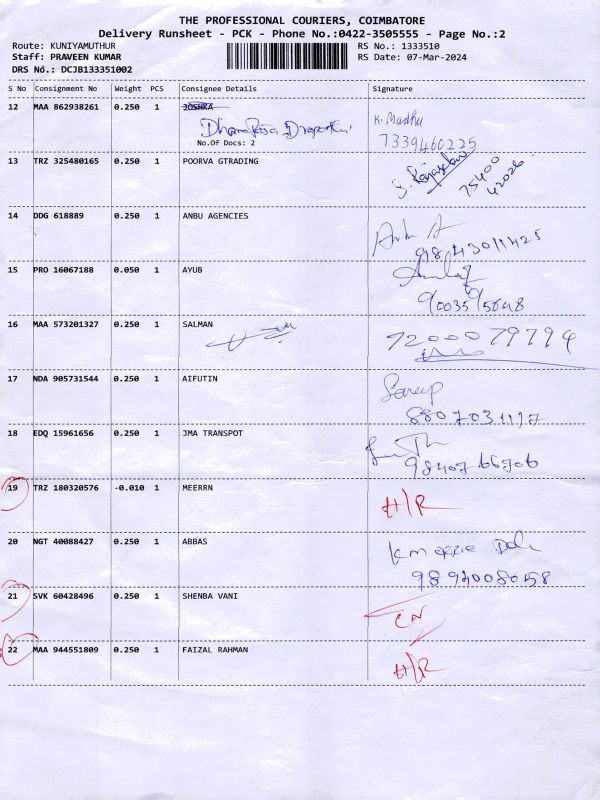 THE PROFESSIONAL COURIERS, COIMBATORE
Delivery Runsheet - PCK - Phone No.:0422-3505555 - Page No.:2
Route: KUNIYAMUTHUR RS No.: 1333510
Staff: PRAVEEN KUMAR RS Date: 07-Mar-2024
DRS No.: DCJB133351002
S No Consignment No Weight PCS Consignee Details Signature
12 MAA 862938261 0.250 1 JOSHKA
K. Madhu
No.Of Docs: 2 7339460225
13 TRZ 325480165 0.250 1 POORVA GTRADING
75400
42026
14 DDG 618889 0.250 1 ANBU AGENCIES
9843011425
15 PRO 16067188 0.050 1 AYUB
16 MAA 573201327 0.250 1 SALMAN
7200079794
17 NDA 905731544 0.250 1 AIFUTIN
18 EDQ 15961656 0.250 1 JMA TRANSPOT
9840766706
19 TRZ 180320576 -0.010 1 MEERRN
H/R
20 NGT 40088427 0.250 1 ABBAS
21 SVK 60428496 0.250 1 SHENBA VANI
CN
22 MAA 944551809 0.250 1 FAIZAL RAHMAN
H/R